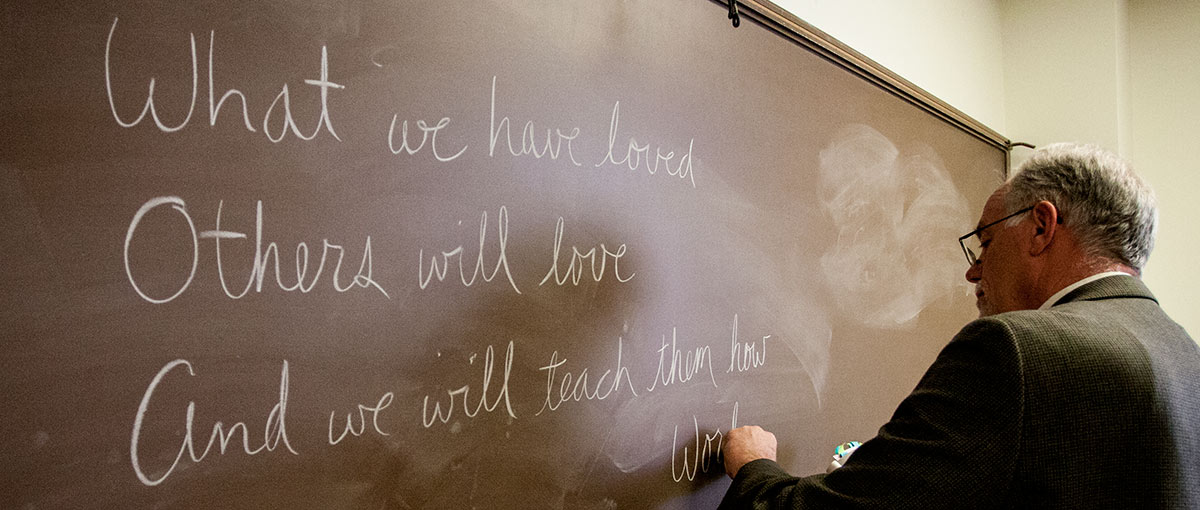 What we have loved
Others will love
And we will teach them how